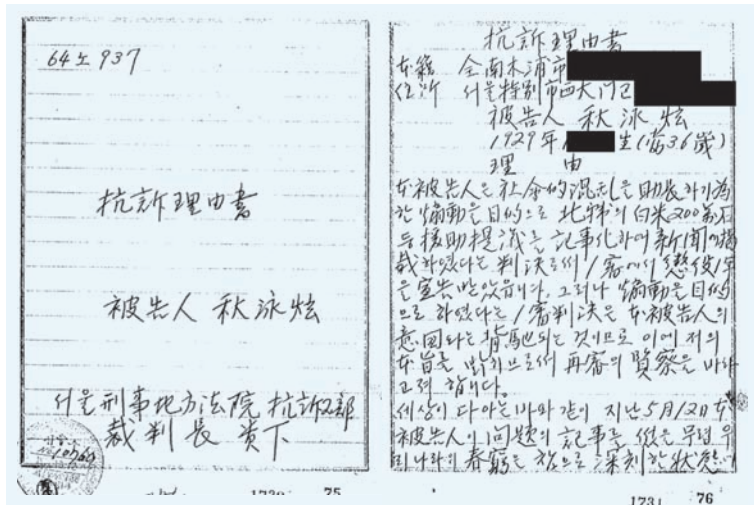 64노937
抗訴理由書
被告人 秋泳炫
서울刑事地方法院 抗訴2部
裁判長 贵下
75
抗訴理由書
本籍 全南木浦市
住所 서울特別市西大门区
被告人 秋泳炫
1929年 生(当36歲)
理 由
本被告人은 社会的混乱을 助長하기為
한 煽動을 目的으로 北韓의 白米200萬石
援助提議를 記事化하여 新聞에揭
載하였다는 判決로써 1審에서 懲役1年
을 宣告받았읍니다. 그러나 煽動을 目的
으로 하였다는 1審判決은 本被告人의
意図와는 背馳되는 것이므로 이에 저의
本旨를 밝히므로써 再審의 賢察을 바라
고저 합니다.
세상이 다아는바와 같이 지난5月12日 本
被告人이 问题의 記事를 썼을 무렵 우
리나라의 春窮은 참으로 深刻한 狀態
1731 76